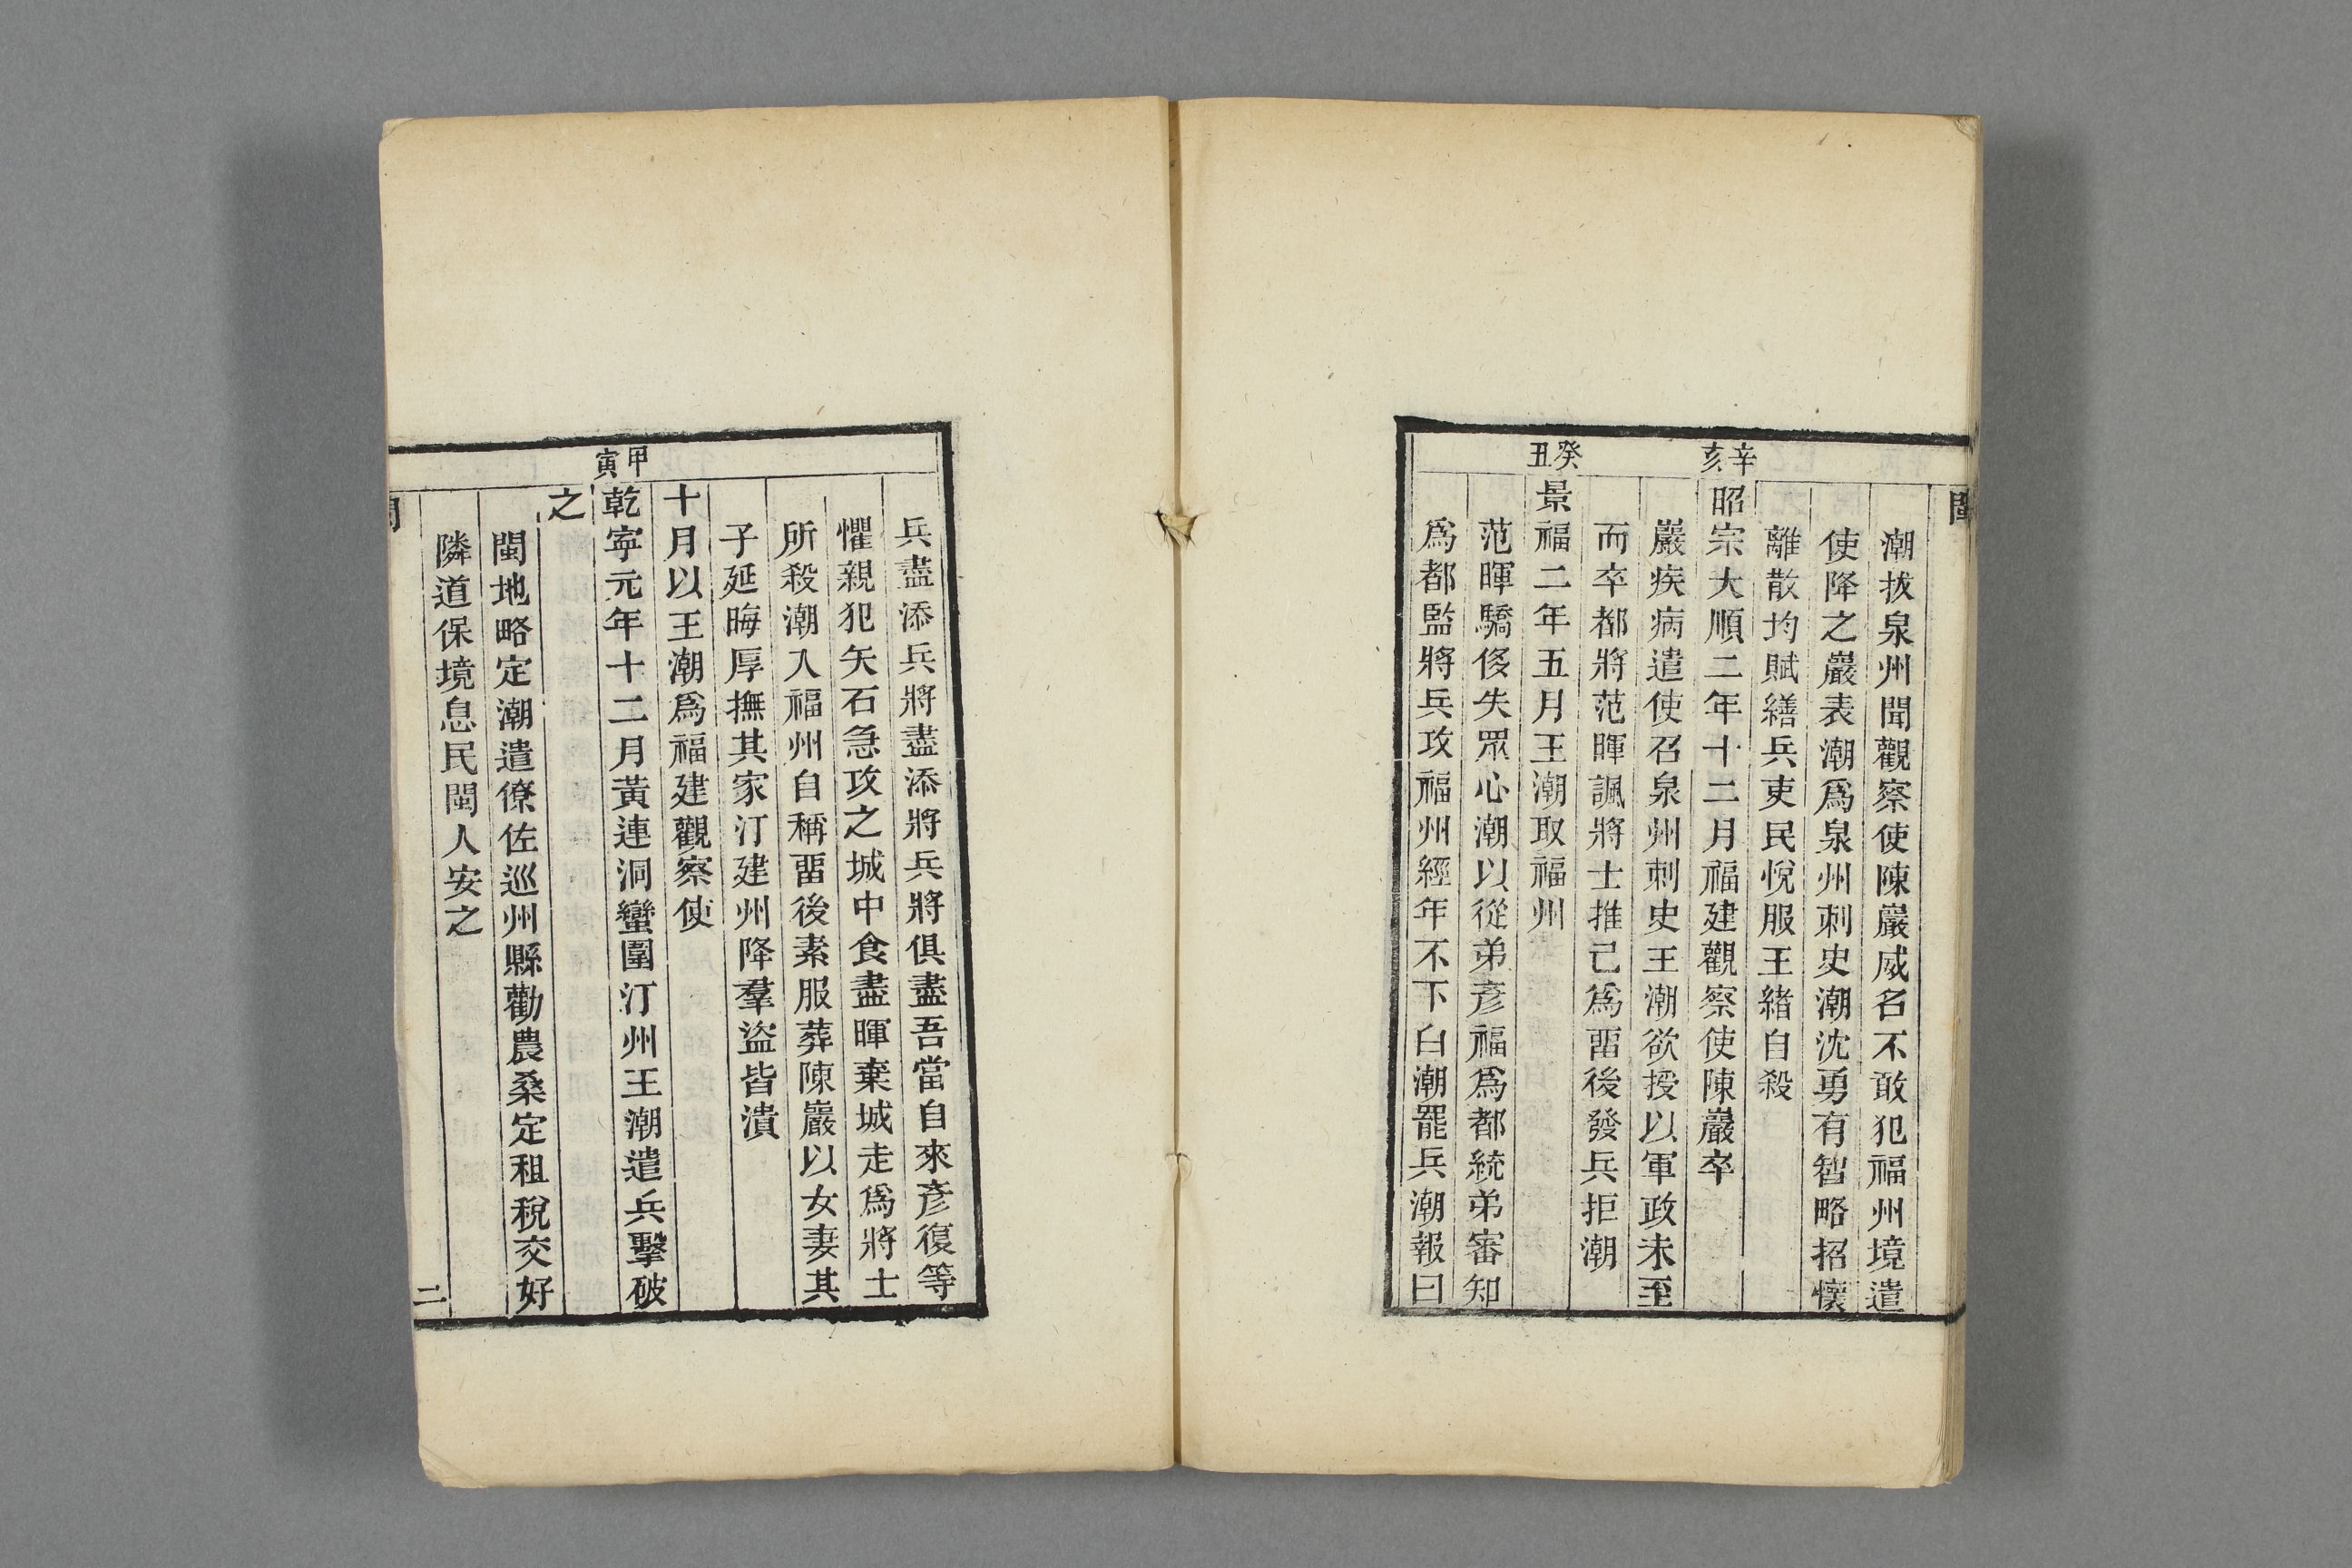 閩
潮拔泉州聞觀察使陳巖威名不敢犯福州境遣
使降之巖表潮爲泉州刺史潮沈勇有智略招懷
離散均賦繕兵吏民悅服王緒自殺
辛亥
昭宗大順二年十二月福建觀察使陳巖卒
巖疾病遣使召泉州刺史王潮欲授以軍政未至
而卒都將范暉諷將士推己爲畱後發兵拒潮
癸丑
景福二年五月王潮取福州
范暉驕侈失眾心潮以從弟彥福爲都統弟審知
爲都監將兵攻福州經年不下白潮罷兵潮報曰
兵盡添兵將盡添將兵將俱盡吾當自來彥復等
懼親犯矢石急攻之城中食盡暉棄城走爲將士
所殺潮入福州自稱畱後素服葬陳巖以女妻其
子延晦厚撫其家汀建州降羣盜皆潰
十月以王潮爲福建觀察使
甲寅
乾寧元年十二月黃連洞蠻圍汀州王潮遣兵擊破
之
閩地略定潮遣僚佐巡州縣勸農桑定租稅交好
隣道保境息民閩人安之
二